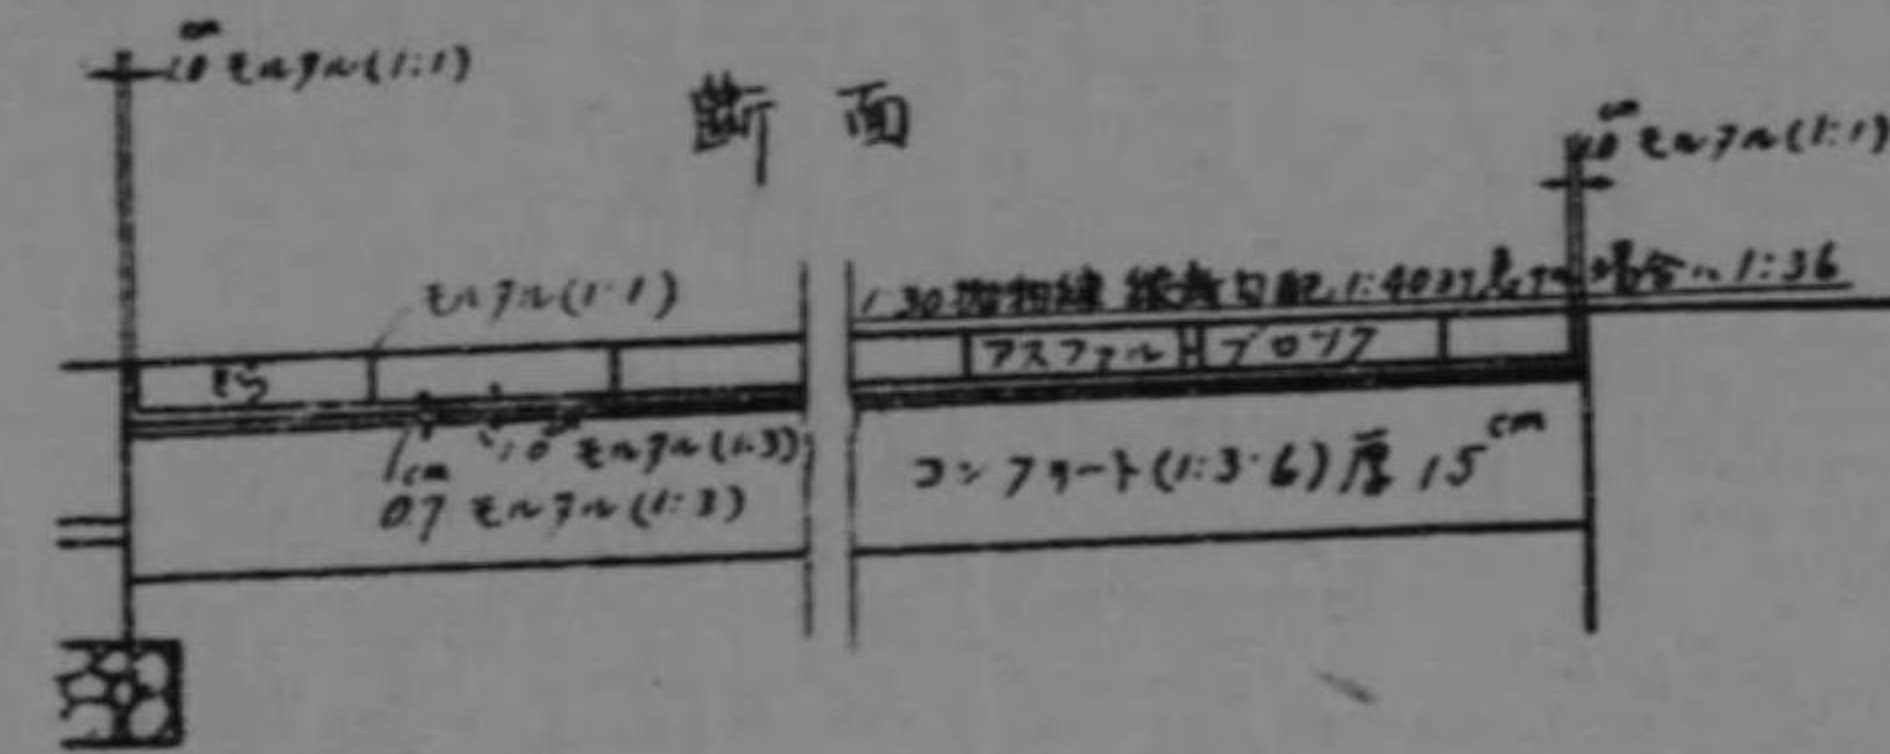 1.0 cm モルタル(1:1)
断面
1.0 cm モルタル(1:1)
モルタル(1:1)
1:30 勾配 1:40 場合ハ 1:36
アスファルト ブロック
1.0 cm モルタル(1:3)
0.7 cm モルタル(1:3)
コンクリート(1:3:6)厚 15 cm